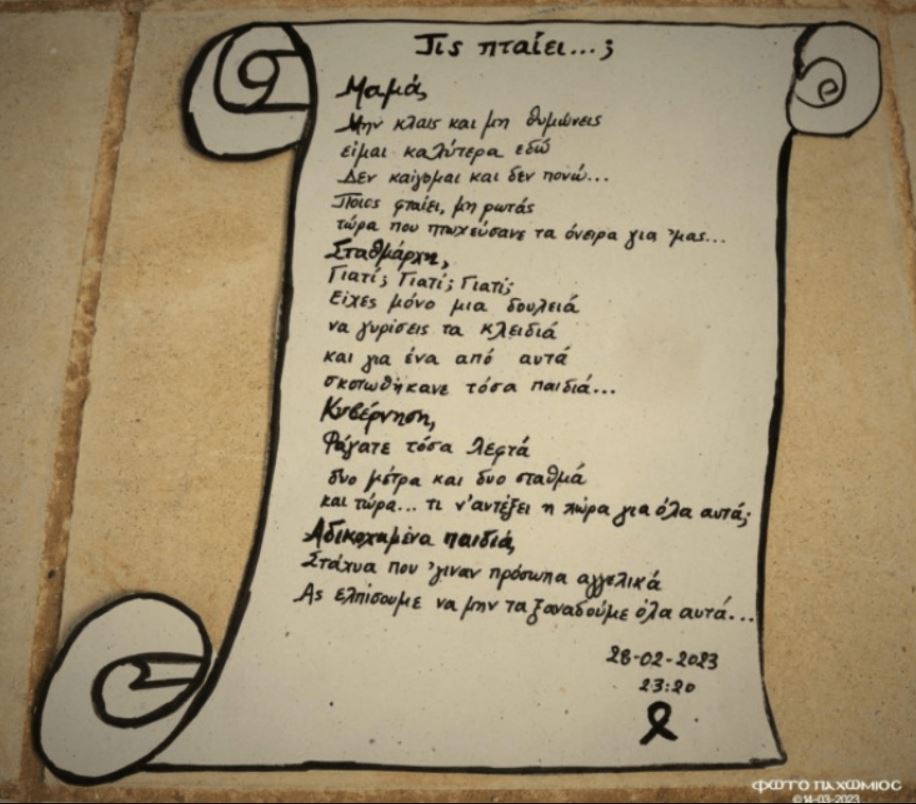 Τις πταίει...;
Μαμά,
Μην κλαις και μη θυμώνεις
είμαι καλύτερα εδώ
Δεν καίγομαι και δεν πονώ...
Ποιος φταίει, μη ρωτάς
τώρα που πτωχεύσανε τα όνειρα για 'μας...
Σταθμάρχη,
Γιατί; Γιατί; Γιατί;
Είχες μόνο μια δουλειά
να γυρίσεις τα κλειδιά
και για ένα από αυτά
σκοτωθήκανε τόσα παιδιά...
Κυβέρνηση,
Φάγατε τόσα λεφτά
δυο μέτρα και δυο σταθμά
και τώρα... τι ν'αντέξει η χώρα για όλα αυτά;
Αδικοχαμένα παιδιά,
Στάχυα που 'γιναν πρόσωπα αγγελικά
Ας ελπίσουμε να μην τα ξαναδούμε όλα αυτά...
28-02-2023
23:20
ΦΩΤΟ ΠΑΧΩΜΙΟΣ
©14-03-2023